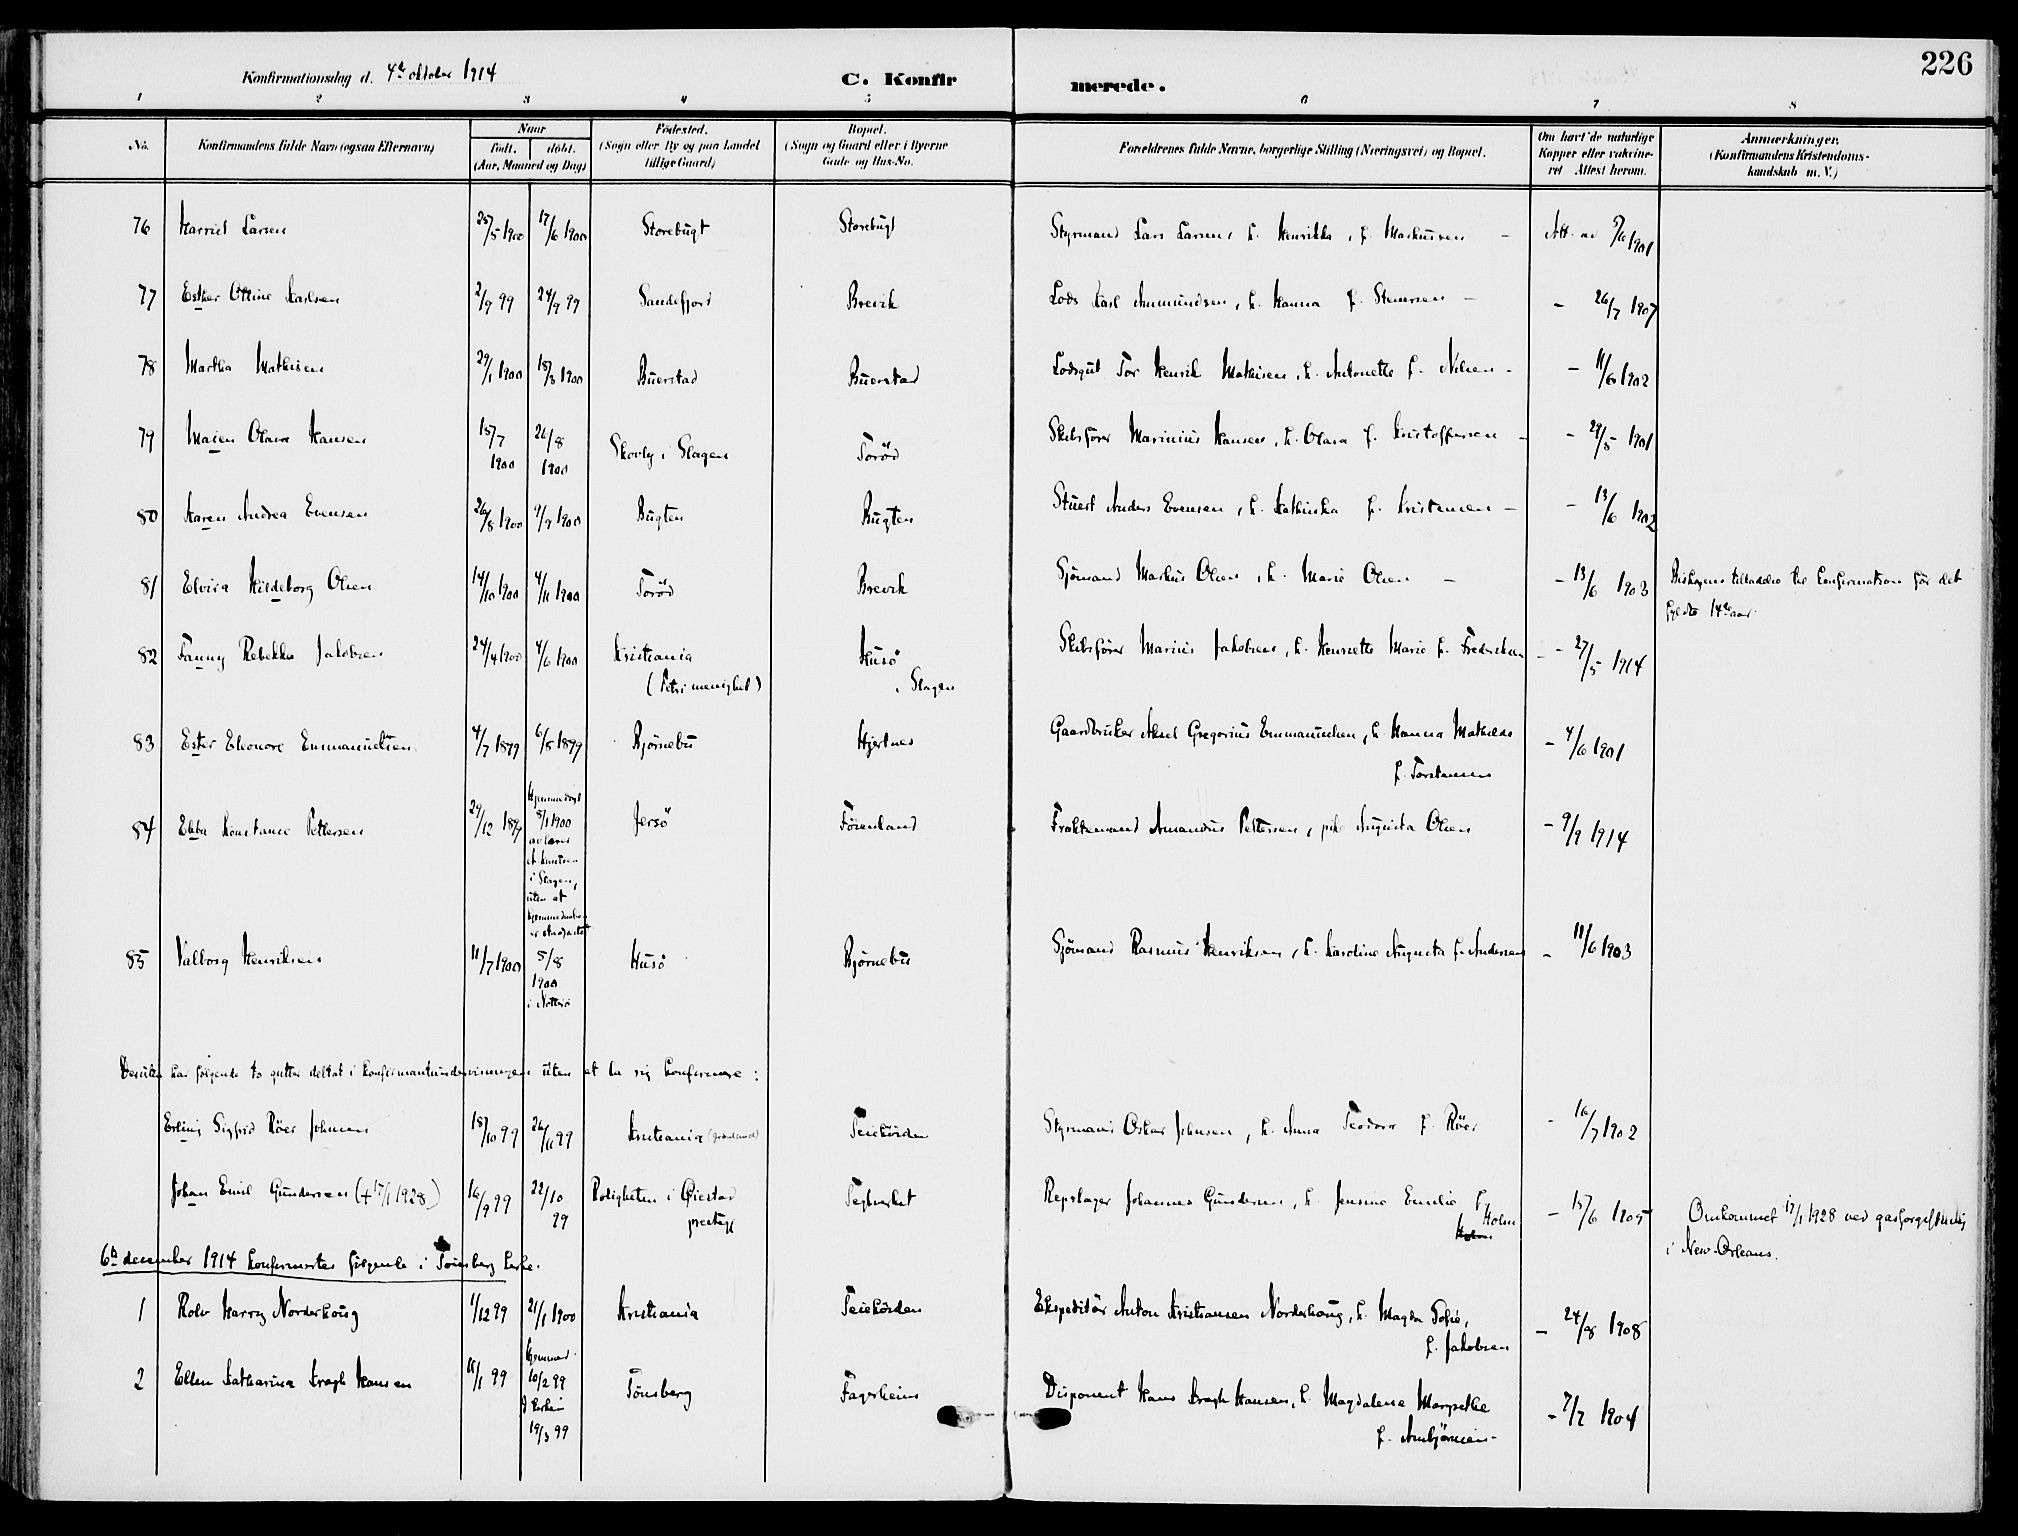 Konfirmationsdag d. 4de oktober 1914 C. Konfirmerede. 226
1 2 3 4 5 6 7 8
No. Konfirmandens fulde Navn (ogsaa Efternavn) Naar født. døbt. (Aar, Maaned og Dag) Fødested. (Sogn eller By og paa Landet tillige Gaard) Bopæl. (Sogn og Gaard eller i Byerne Gade og Hus-No. Forældrenes fulde Navne, borgerlige Stilling (Næringsvei) og Bopæl. Om havt de naturlige Kopper eller vaksineret Attest herom. Anmærkninger. (Konfirmandens Kristendomskundskab m. V.)
76 Harriet Larsen 25/5 1900 17/6 1900 Storebugt Storebugt Styrmand Lars Larsen, h. Henrikke, f. Markussen – Att. av 5/6 1901
77 Esther Otline Karlsen 2/9 99 24/9 99 Sandefjord Brevik Lods Karl Amundsen, h. Hanna f. Stenersen – – 26/7 1907
78 Martha Mathisen 29/1 1900 18/3 1900 Buerstad Buerstad Lodsgut Tor Henrik Mathisen, h. Antonette f. Nilsen – – 11/6 1902
79 Maien Olava Hansen 15/7 1900 26/8 1900 Skovly i Slagen Torød Skibsfører Marinius Hansen, h. Olava f. Kristoffersen – – 29/5 1901
80 Karen Andrea Evensen 26/8 1900 9/9 1900 Bugten Bugten Stuert Anders Evensen, h. Kathinka f. Kristensen – – 13/6 1902
81 Elvira Hildeborg Olsen 14/10 1900 4/11 1900 Torød Brevik Sjømand Markus Olsen, h. Marie Olsen – – 13/6 1903 Biskopens tilladelse til konfirmation før det
fyldte 14de aar.
82 Fanny Rebekka Jakobsen 24/4 1900 4/6 1900 Kristiania Husø Skibsfører Marius Jakobsen, h. Henriette Marie f. Frederiksen – 27/5 1914
(Petri menighet) i Slagen
83 Ester Eleonore Emmanuelsen 4/7 1899 6/8 1899 Bjørnebu Hjertnes Gaardbruker Aksel Gregorius Emmanuelsen, h. Hanna Mathilde – 4/6 1901
f. Torstensen
84 Ebba Konstance Pettersen 29/12 1899 Hjemmedøpt 8/1 1900 av lærer A. Knutsen i Slagen, uten at hjemmedaaben er stadfæstet Jersø Føienland Fraktemand Amandus Pettersen, pike Augusta Olsen – 9/9 1914
85 Valborg Henriksen 11/7 1900 5/8 1900 i Nøtterø Husø Bjørnebu Sjømand Rasmus Henriksen, h. Karoline Augusta f. Andersen – 11/6 1903
Desuten har følgende to gutter deltat i konfirmantundervisningen uten at la sig konfirmere:
Erling Sigfrid Röer Johnsen 18/10 99 26/11 99 Kristiania Teiehöiden Styrmand Oskar Johnsen, h. Anna Teodora f. Röer – 16/7 1902
Johan Emil Gundersen (+ 17/1 1928) 16/9 99 22/10 99 Roligheten i Øiestad prestegj. Teglverket Repslager Johannes Gundersen, h. Jensine Emilie f. Holm – 15/6 1905 Omkommet 17/1 1928 ved gasforgiftning
i New-Orleans.
6te december 1914 konfirmertes følgende i Tønsberg kirke.
1 Rolv Harry Norderhoug 1/12 99 21/1 1900 Kristiania Teiehöiden Ekspeditör Anton Kristiansen Norderhoug, h. Magda Sofie, – 24/8 1908
f. Jakobsen
2 Ellen Katharina Kragh Hansen 11/1 99 hjemmed. 10/2 99 i kirken 19/3 99 Tønsberg Fagerheim Disponent Hans Kragh Hansen, h. Magdalene Margrethe – 7/7 1904
f. Ambjörnsen –